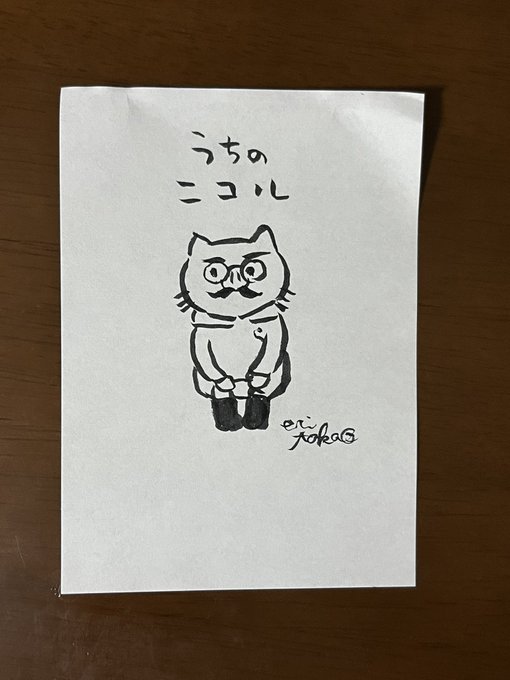 うちの
ニコル
eri